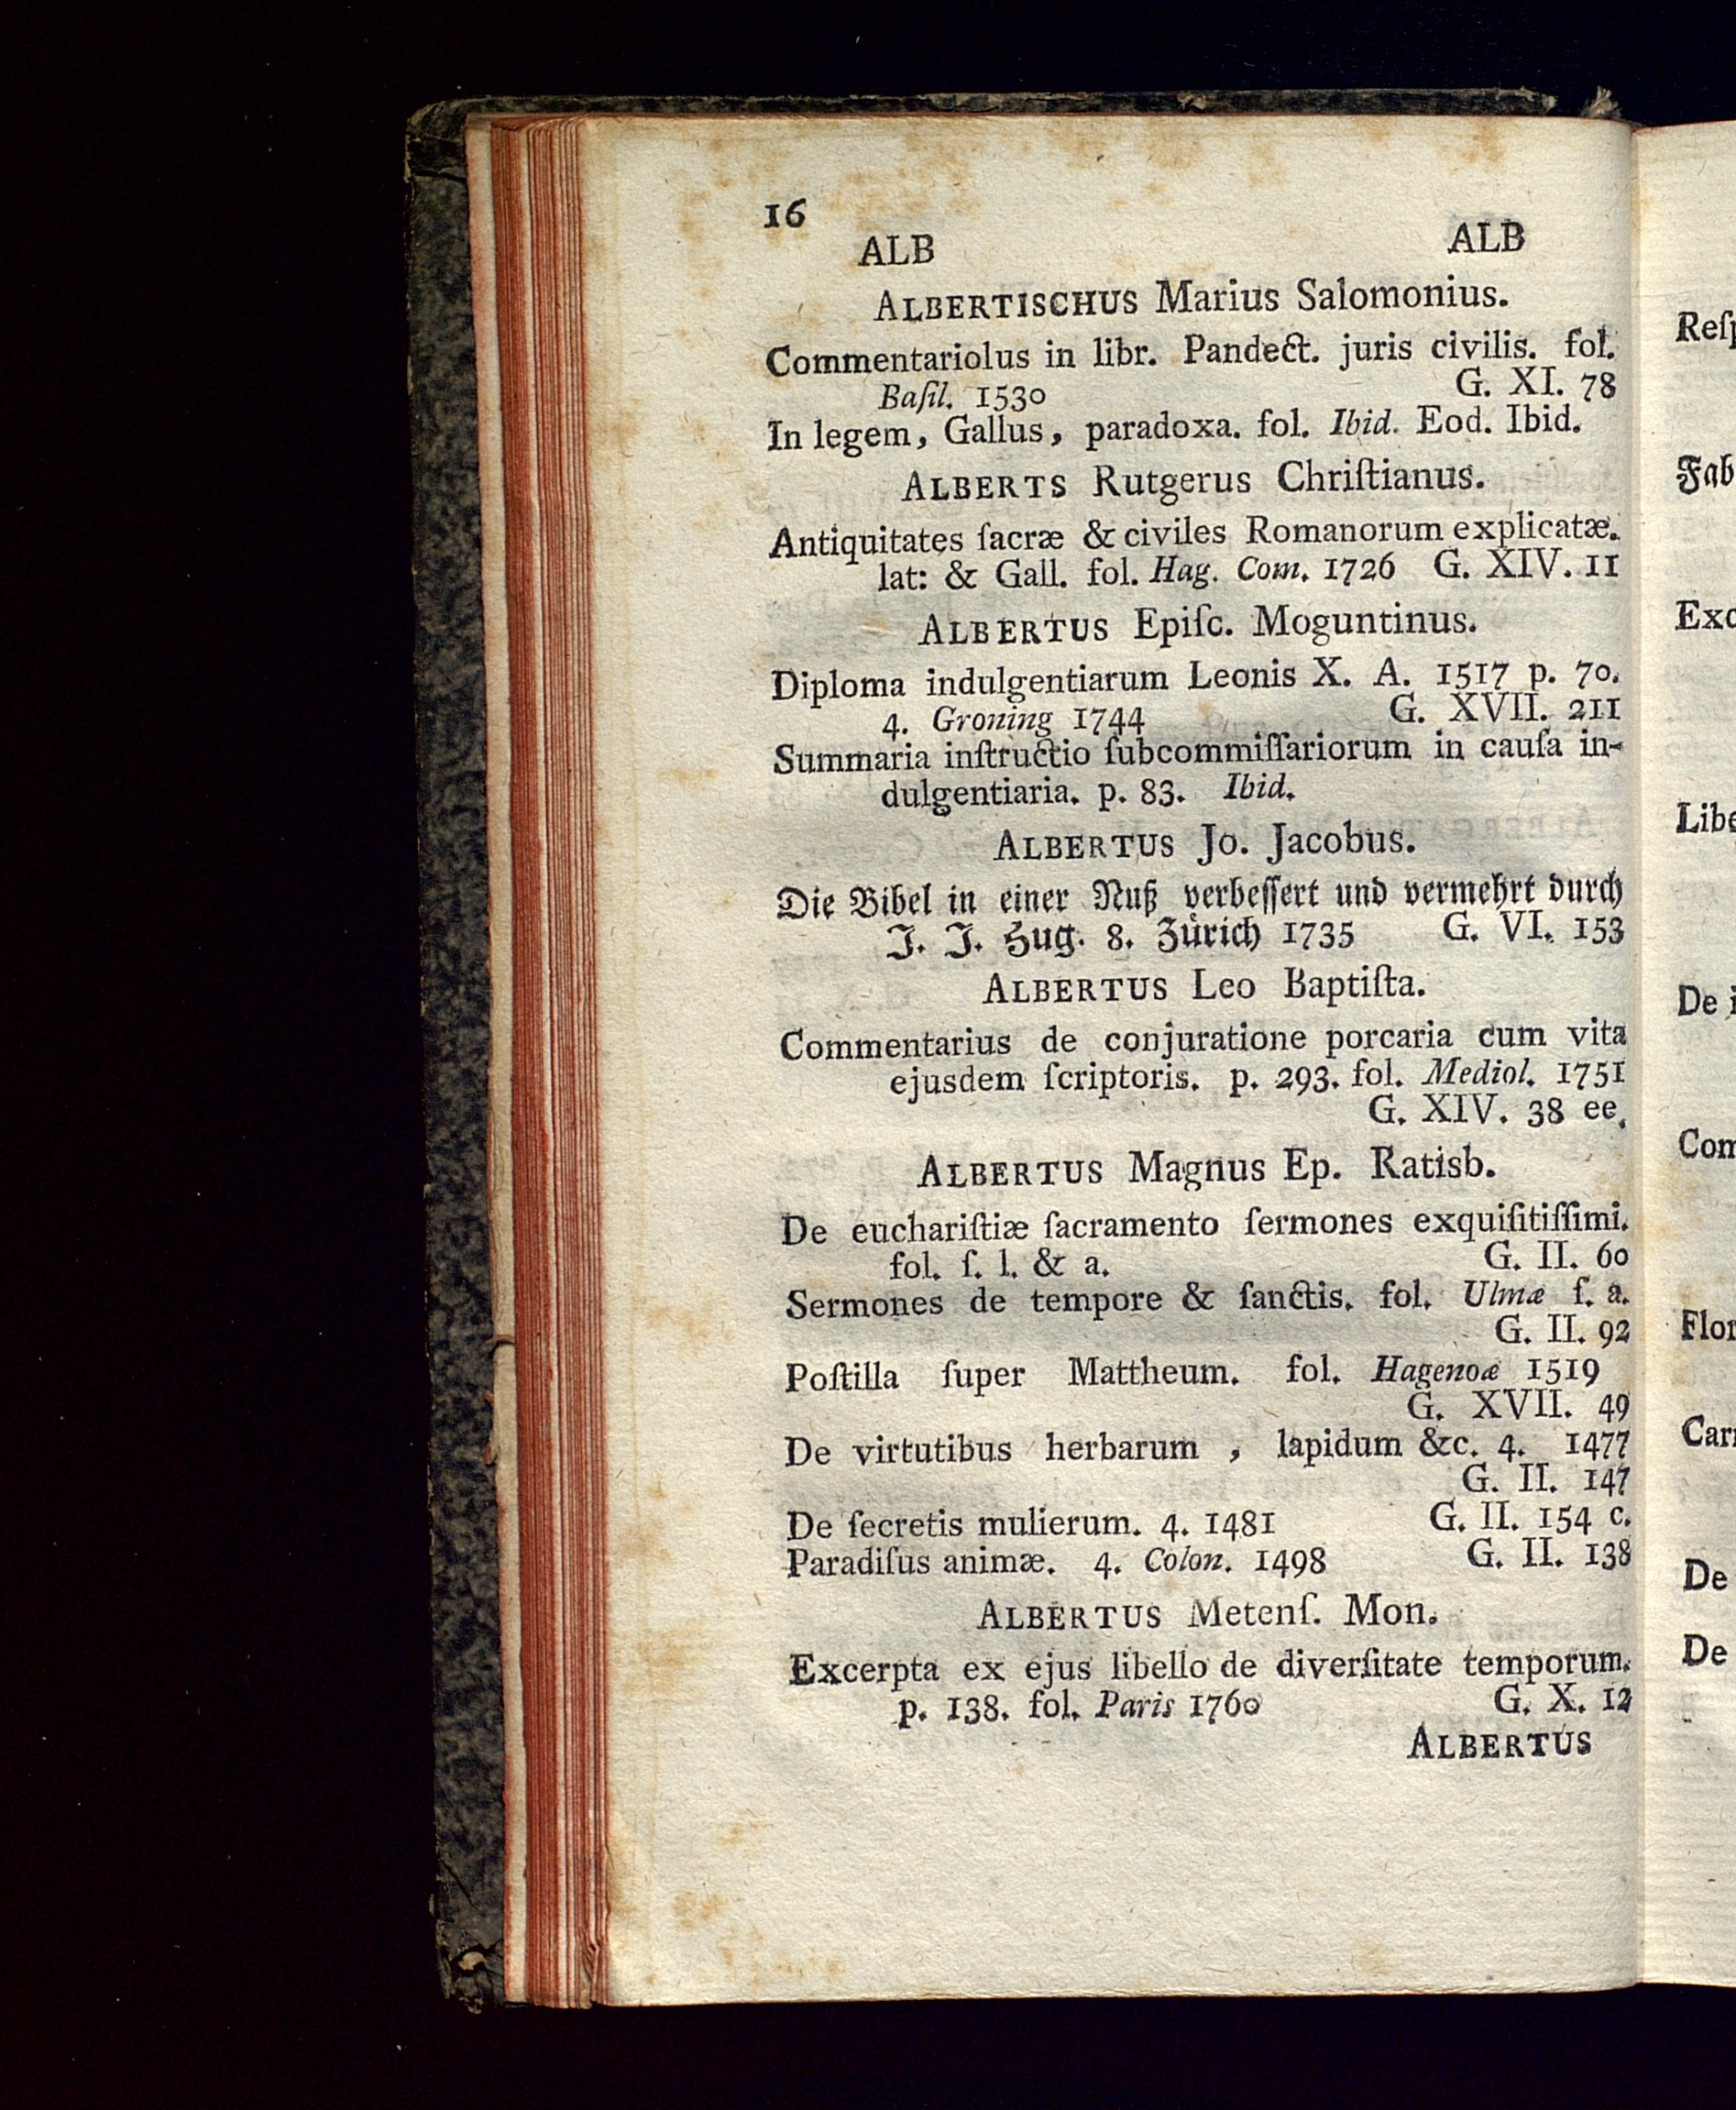 16
ALB ALB
ALBERTISCHUS Marius Salomonius.
Commentariolus in libr. Pandect. juris civilis. fol.
Baſil. 1530 G. XI. 78
In legem, Gallus, paradoxa. fol. Ibid. Eod. Ibid.
ALBERTS Rutgerus Chriſtianus.
Antiquitates ſacræ & civiles Romanorum explicatæ.
lat: & Gall. fol. Hag. Com. 1726 G. XIV. 11
ALBERTUS Epiſc. Moguntinus.
Diploma indulgentiarum Leonis X. A. 1517 p. 70.
4. Groning 1744 G. XVII. 211
Summaria inſtructio ſubcommiſſariorum in cauſa in-
dulgentiaria. p. 83. Ibid.
ALBERTUS Jo. Jacobus.
Die Bibel in einer Nuß verbeſſert und vermehrt durch
J. J. Hug. 8. Zürich 1735 G. VI. 153
ALBERTUS Leo Baptiſta.
Commentarius de conjuratione porcaria cum vita
ejusdem ſcriptoris. p. 293. fol. Mediol. 1751
G. XIV. 38 ee.
ALBERTUS Magnus Ep. Ratisb.
De euchariſtiæ ſacramento ſermones exquiſitiſſimi.
fol. ſ. l. & a. G. II. 60
Sermones de tempore & ſanctis. fol. Ulmæ ſ. a.
G. II. 92
Poſtilla ſuper Mattheum. fol. Hagenoæ 1519
G. XVII. 49
De virtutibus herbarum , lapidum &c. 4. 1477
G. II. 147
De ſecretis mulierum. 4. 1481 G. II. 154 c.
Paradiſus animæ. 4. Colon. 1498 G. II. 138
ALBERTUS Metenſ. Mon.
Excerpta ex ejus libello de diverſitate temporum.
p. 138. fol. Paris 1760 G. X. 12
ALBERTUS
Reſp
Fab
Exc
Libe
De i
Com
Flor
Car
De
De